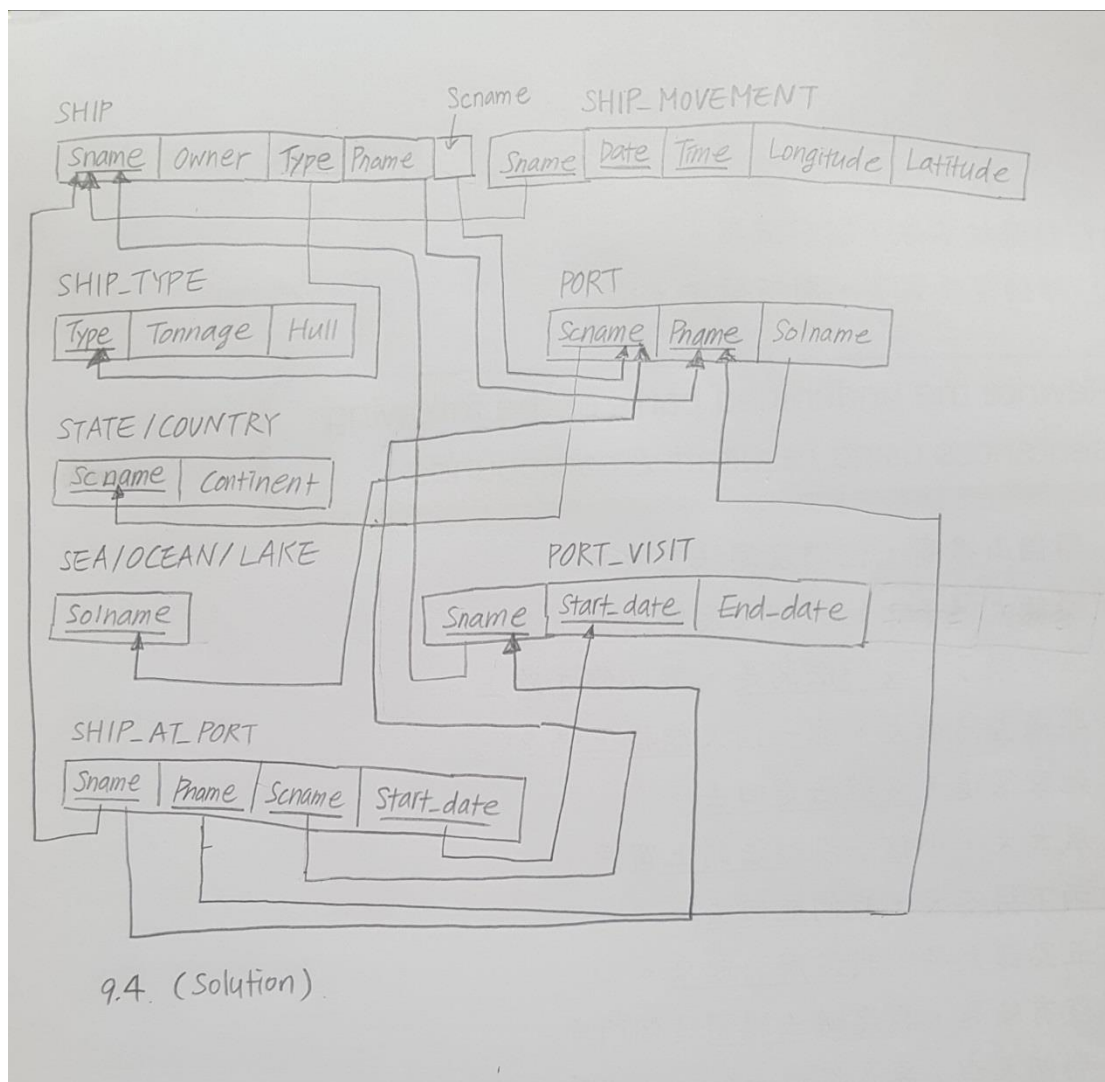 SHIP
Scname
SHIP_MOVEMENT
Sname Owner Type Pname
Sname Date Time Longitude Latitude
SHIP_TYPE
Type Tonnage Hull
PORT
Scname Pname Solname
STATE/COUNTRY
Scname Continent
SEA/OCEAN/LAKE
Solname
PORT_VISIT
Sname Start_date End_date
SHIP_AT_PORT
Sname Pname Scname Start_date
9.4. (Solution)